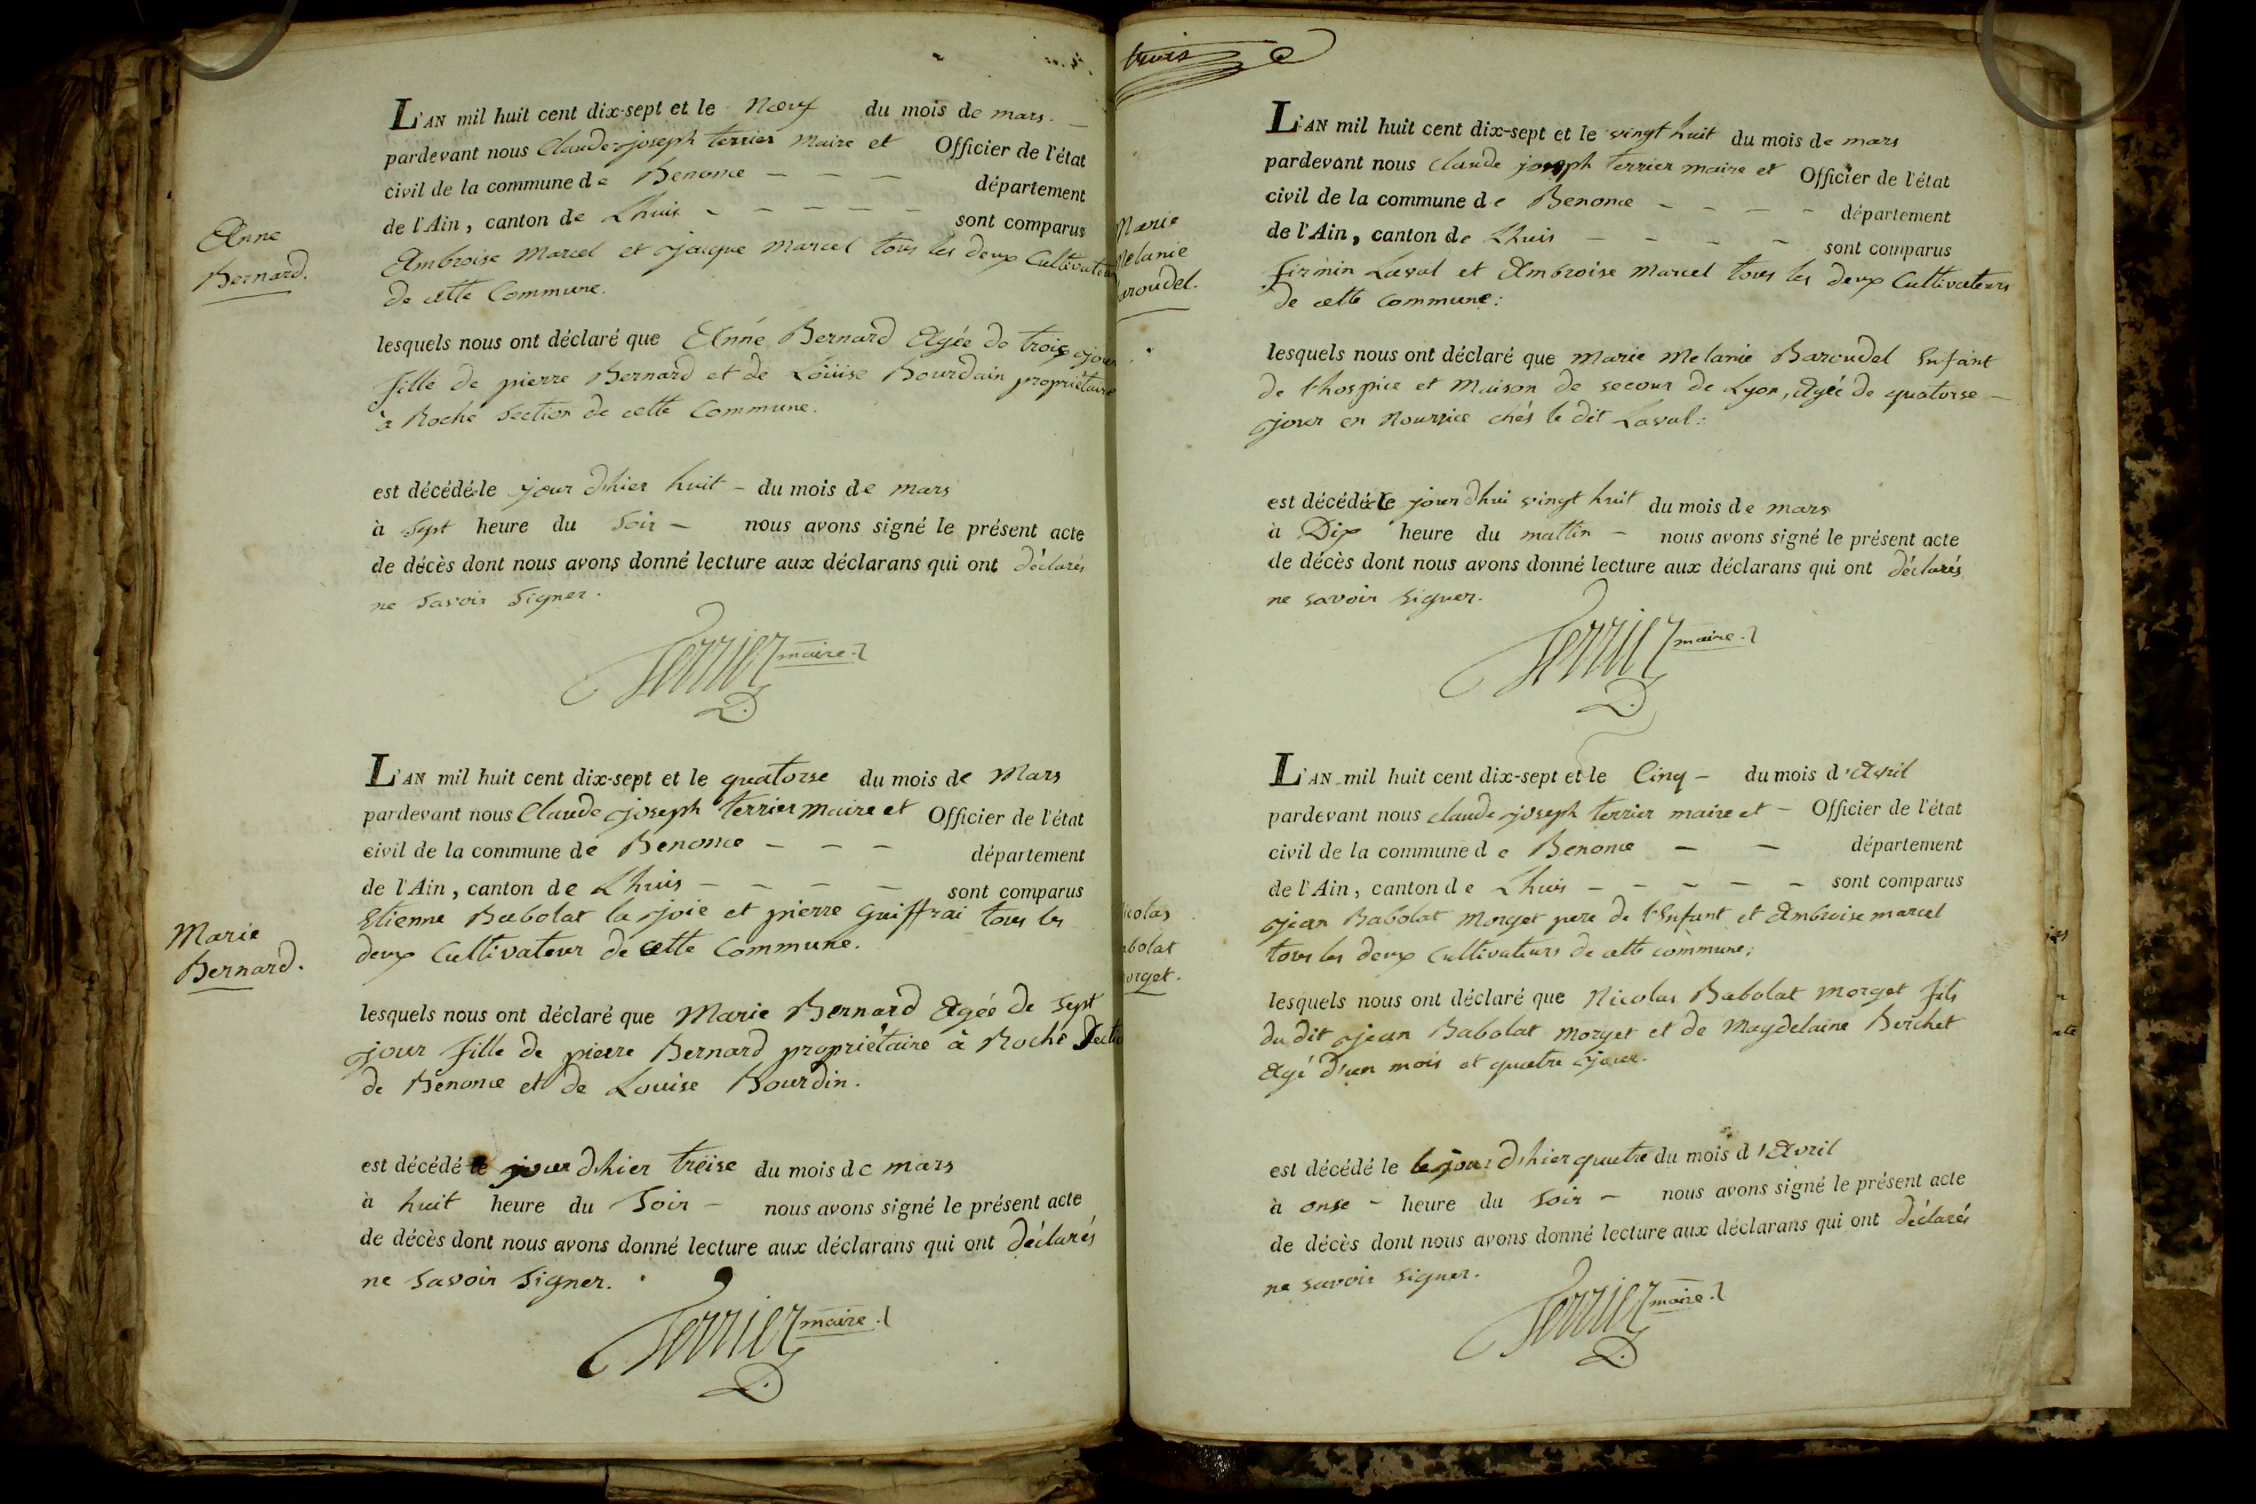 Anne
Bernard.
L'AN mil huit cent dix-sept et le Neuf du mois de mars.
pardevant nous Claude joseph terrier Maire et Officier de l'état
civil de la commune de Benonce département
de l'Ain, canton de Lhuis sont comparus
Ambroise Marcel et jacque Marcel tous les deux Cultivateur
de cette Commune.
lesquels nous ont déclaré que Anne Bernard Agée de trois jour
fille de pierre Bernard et de Loüise Bourdain propriétaire
à Roche Section de cette Commune.
est décédé le jour dhier huit du mois de mars
à sept heure du Soir nous avons signé le présent acte
de décès dont nous avons donné lecture aux déclarans qui ont déclarés
ne savoir signer.
Terrier maire
Marie
Bernard.
L'AN mil huit cent dix-sept et le quatorse du mois de Mars
pardevant nous Claude joseph terrier Maire et Officier de l'état
civil de la commune de Benonce département
de l'Ain, canton de Lhuis sont comparus
Etienne Babolat la joie et pierre Guiffrai tous les
deux Cultivateur de cette Commune.
lesquels nous ont déclaré que Marie Bernard Agée de Sept
jour fille de pierre Bernard propriétaire à Roche Sectio
de Benonce et de Louise Bourdin.
est décédé le jour dhier treise du mois de mars
à huit heure du Soir nous avons signé le présent acte
de décès dont nous avons donné lecture aux déclarans qui ont déclarés
ne savoir signer.
Terrier maire
trois
Marie
Melanie
aroudel.
L'AN mil huit cent dix-sept et le vingt huit du mois de mars
pardevant nous claude joseph terrier maire et Officier de l'état
civil de la commune de Benonce département
de l'Ain, canton de Lhuis sont comparus
firmin Laval et Ambroise Marcel tous les deux Cultivateurs
de cette commune:
lesquels nous ont déclaré que Marie Melanie Baroudel Enfant
de l'hospice et Maison de secour de Lyon, Agée de quatorse
jour en Nourrice chés le dit Laval:
est décédé le jourdhui vingt huit du mois de mars
à Dix heure du mattin nous avons signé le présent acte
de décès dont nous avons donné lecture aux déclarans qui ont déclarés
ne savoir signer.
Terrier maire
icolas
abolat
orget.
L'AN mil huit cent dix-sept et le Cinq du mois d'Avril
pardevant nous claude joseph terrier maire et Officier de l'état
civil de la commune de Benonce département
de l'Ain, canton de Lhuis sont comparus
jean Babolat Morget pere de l'Enfant et Ambroise marcel
tous les deux Cultivateurs de cette commune;
lesquels nous ont déclaré que Nicolas Babolat Morget fils
du dit jean Babolat Morget et de Magdelaine Berchet
Agé d'un mois et quatre jour.
est décédé le le jour dhier quatre du mois d'Avril
à onse heure du Soir nous avons signé le présent acte
de décès dont nous avons donné lecture aux déclarans qui ont déclarés
ne savoir signer.
Terrier maire